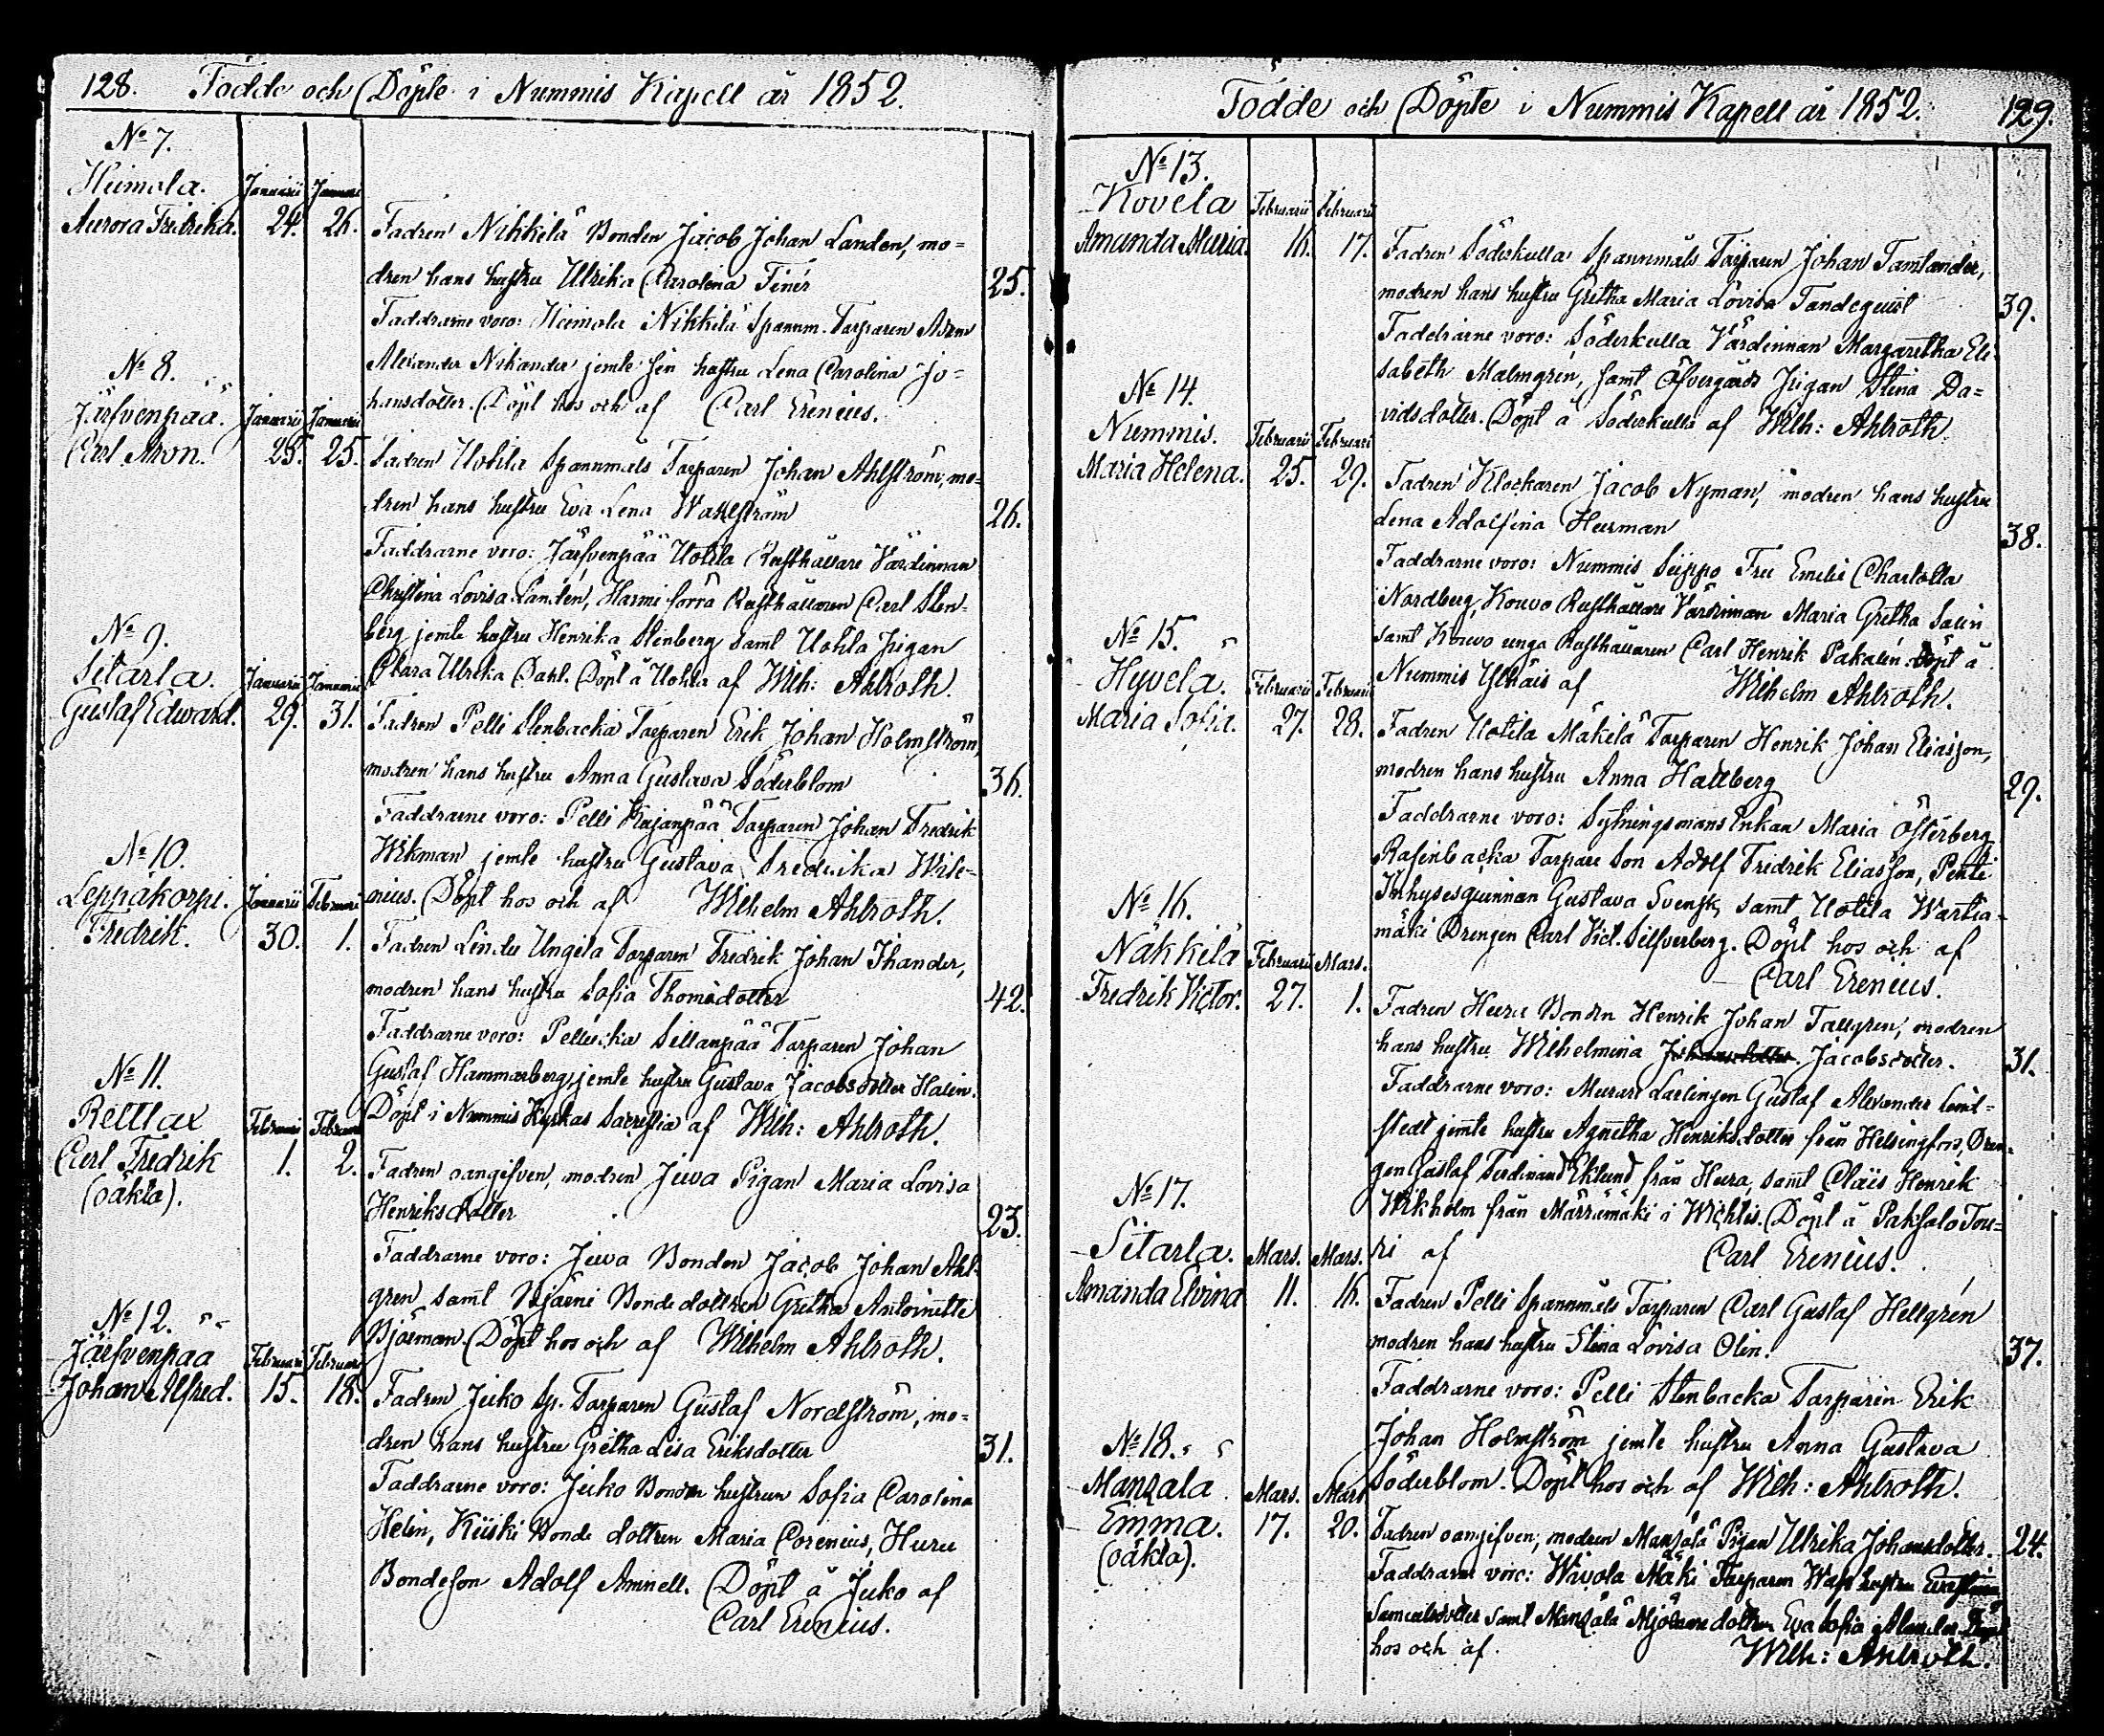 128. Födde och Döpte i Nummis Kapell år 1852.
No 7.
Heimola. Januarii Januarii
Aurora Fredrika. 24. 26. Fadren Nikkilä Bonden Jacob Johan Landen, mo=
dren hans hustru Ulrika Carolina Finér 25.
Faddrarne voro: Heimola Nikkilä Spannm. Torparen Adam
Alexander Nikander jemte sin hustru Lena Carolina Jo=
hansdotter. Döpt hos och af Carl Erenius.
No 8.
Järfvenpää. Januarii Januarii
Carl Aron. 25. 25. Fadren Uotila Spannmåls Torparen Johan Ahlström, mo=
dren hans hustru Eva Lena Wahlström 26.
Faddrarne voro: Järfvenpää Uotila Rusthållare Värdinnan
Christina Lovisa Landén, Harmi förra Rusthållaren Carl Sten=
berg jemte hustru Henrika Stenberg samt Uotila Pigan
Clara Ulrika Dahl. Döpt å Uotila af Wilh: Ahlroth.
No 9.
Sitarla. Januarii Januarii
Gustaf Edward. 29. 31. Fadren Pelli Stenbacka Torparen Erik Johan Holmström,
modren hans hustru Anna Gustava Söderblom 36.
Faddrarne voro: Pelli Kujanpää Torparen Johan Fredrik
Wikman jemte hustru Gustava Fredrika Wile=
nius. Döpt hos och af Wilhelm Ahlroth.
No 10.
Leppäkorpi. Januarii Februari
Fredrik. 30. 1. Fadren Lindu Ungila Torparen Fredrik Johan Ihander,
modren hans hustru Sofia Thomsdotter 42.
Faddrarne voro: Sillanpää Torparen Johan
Gustaf Hammarberg, jemte hustru Gustava Jacobsdotter Halin.
Döpt i Nummis Kyrkas Sacristia af Wilh: Ahlroth.
No 11.
Rettlax Februari Februari
Carl Fredrik 1. 2. Fadren oangifven, modren Juva Pigan Maria Lovisa
(oäkta). Henriksdotter 23.
Faddrarne voro: Juva Bonden Jacob Johan Ahl=
gren samt Bjärni Bonde dottren Gretha Antoinette
Björman. Döpt hos och af Wilhelm Ahlroth.
No 12.
Järfvenpää Februari Februari
Johan Alfred. 15. 18. Fadren Juko Sp. Torparen Gustaf Nordström, mo=
dren hans hustru Gretha Lisa Eriksdotter 31.
Faddrarne voro: Juko Bonden hustrun Sofia Carolina
Helin, Kiiski Bonde dottren Maria Corenius, Huru
Bondeson Adolf Aminell. Döpt å Juko af
Carl Erenius.
Födde och Döpte i Nummis Kapell år 1852. 129.
No 13.
Kovela Februarii Februarii
Amanda Maria 16. 17. Fadren Söderkulla Spannmåls Torparen Johan Tamlander,
modren hans hustru Gretha Maria Lovisa Tandequist 39.
Faddrarne voro: Söderkulla Värdinnan Margaretha Eli=
sabeth Malmgrén, samt Öfvergårds Pigan Stina Da=
vidsdotter. Döpt å Söderkulla af Wilh: Ahlroth.
No 14.
Nummis. Februarii Februari
Maria Helena. 25. 29. Fadren Klockaren Jacob Nyman, modren hans hustru
Lena Adolfina Heurman 38.
Faddrarne voro: Nummis Suppo Fru Emilie Charlotta
Nordberg, Kouvo Rusthållare Värdinnan Maria Gretha Salin
samt Kouvo unga Rusthållaren Carl Henrik Pakalén. Döpt å
Nummis af Wilhelm Ahlroth.
No 15.
Hyvelä. Februarii Februarii
Maria Sofia. 27. 28. Fadren Uotila Mäkilä Torparen Henrik Johan Eliasson,
modren hans hustru Anna Hallberg 29.
Faddrarne voro: Sytningsmans Enkan Maria Österberg,
Rasinbacka Torpare Son Adolf Fridrik Eliasson, Penti
Inhysesquinnan Gustava Svensk, samt Uotila Wartia=
mäki Drengen Carl Vict. Silfverberg. Döpt hos och af
Carl Erenius.
No 16.
Näkkilä Februarii Mars.
Fredrik Victor. 27. 1. Fadren Huru Bonden Henrik Johan Tallgren, modren
hans hustru Wilhelmina Jacobsdotter. 31.
Faddrarne voro: Murare Lärlingen Gustaf Alexander
stedt jemte hustru Agnetha Henriksdotter från Helsingfors, Dren=
gen Gustaf Ferdinand Eklund från Huru, samt Claës Henrik
Wikholm från Märrämäki i Wichtis. Döpt å Paksalo Tou=
ri af Carl Erenius.
No 17.
Sitarla. Mars. Mars.
Amanda Elvina 11. 16. Fadren Pelli Spannmåls Torparen Carl Gustaf Hellgrén
modren hans hustru Stina Lovisa Olin. 37.
Faddrarne voro: Pelli Stenbacka Torparen Erik
Johan Holmström jemte hustru Anna Gustava
Söderblom. Döpt hos och af Wilh: Ahlroth.
No 18.
Mansala Mars. Mars
Emma. 17. 20. Fadren oangifven, modren Mansala Pigan Ulrika Johansdotter. 24.
(oäkta). Faddrarne voro: Wivola Mäki Torparen hustru
Samuelsdotter samt Mansala Mjölnare dottren Eva Sofia
hos och af. Wilh: Ahlroth.